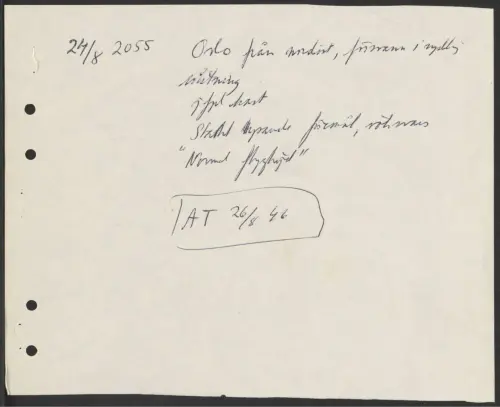 24/8 2055 Oslo från nordost, försvann i sydlig
riktning
Hög fart
Starkt lysande föremål, röksvans
"Normal flyghöjd"
AT 26/8 46